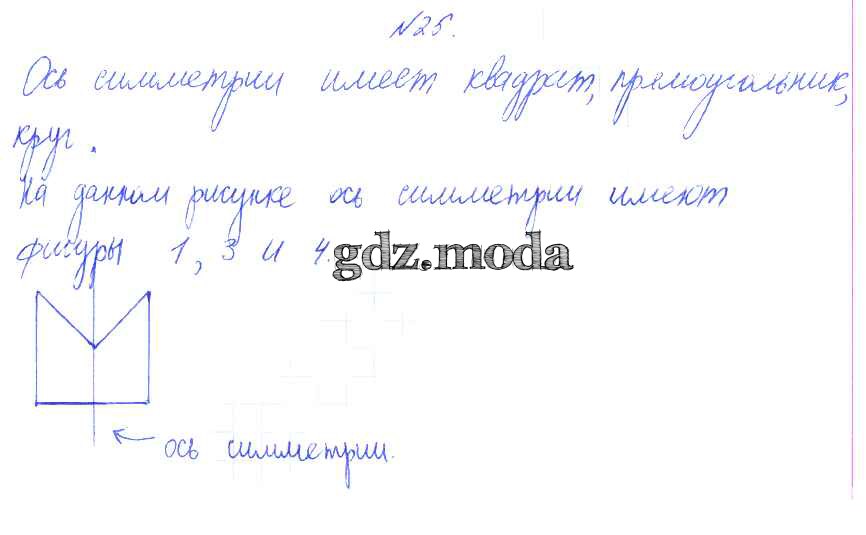 №25.
Ось симметрии имеет квадрат, прямоугольник,
круг.
На данном рисунке ось симметрии имеют
фигуры 1, 3 и 4.
gdz.moda
ось симметрии.